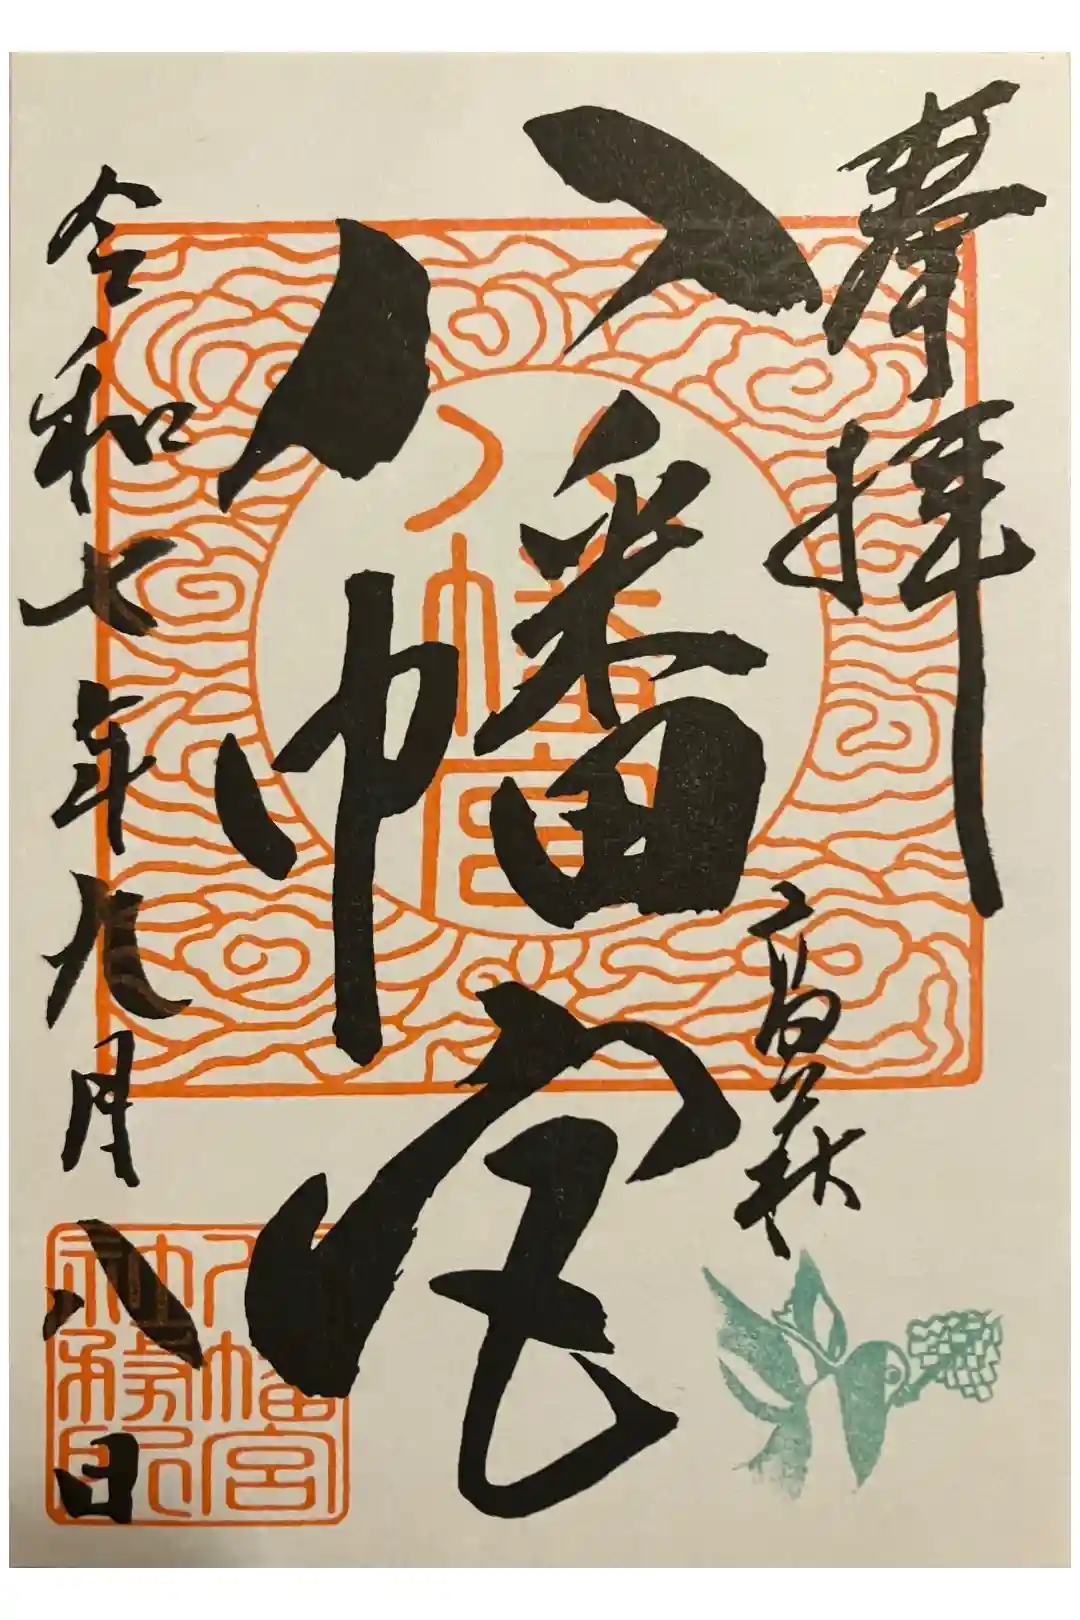 奉拝
高萩
八幡宮
令和七年九月八日
八幡宮
八幡宮
神務所